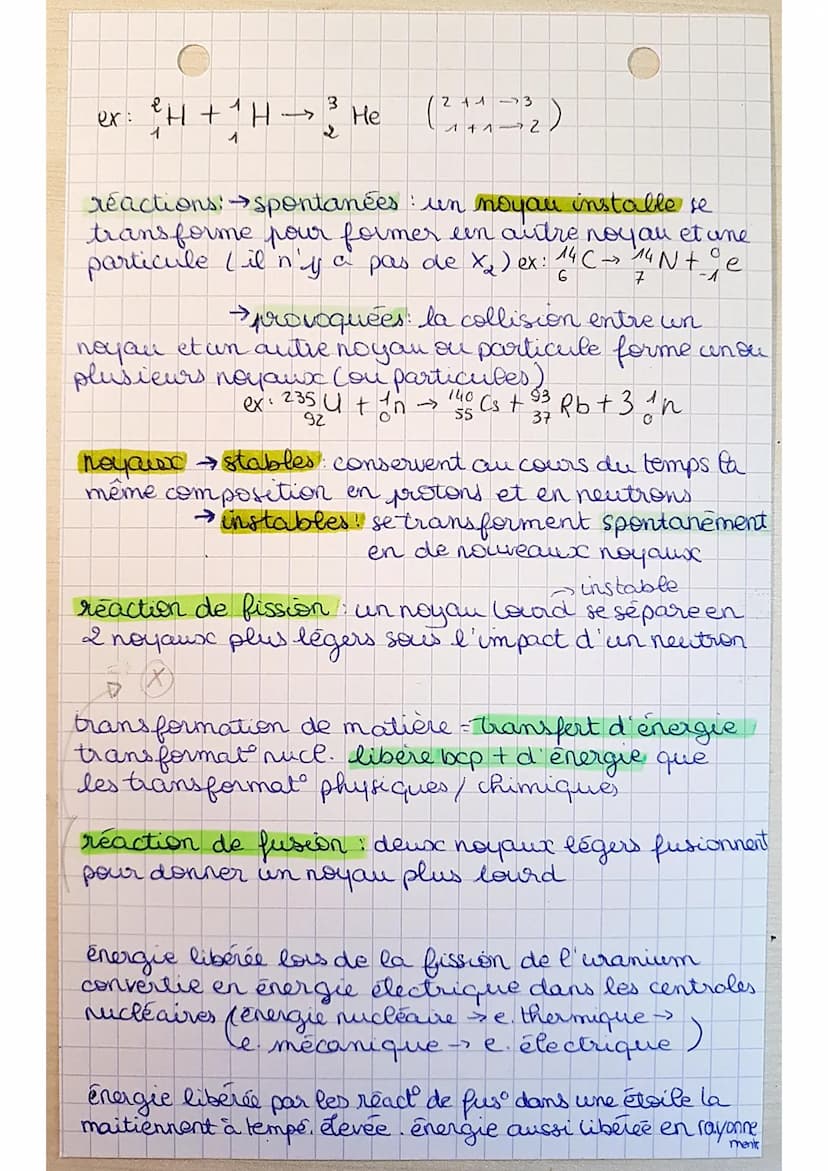 ex: ²₁H + ¹₁H → ³₂He (2+1→3
1+1→2)
réactions: → spontanées : un noyau instable se
transforme pour former un autre noyau et une
particule (il n'y a pas de X₂) ex: ¹⁴₆C → ¹⁴₇N + ⁰₋₁e
→ provoquées: la collision entre un
noyau et un autre noyau ou particule forme un ou
plusieurs noyaux (ou particules)
ex: ²³⁵₉₂U + ¹₀n → ¹⁴⁰₅₅Cs + ⁹³₃₇Rb + 3 ¹₀n
noyaux → stables: conservent au cours du temps la
même composition en protons et en neutrons
→ instables: se transforment spontanément
en de nouveaux noyaux
→ instable
réaction de fission : un noyau lourd se sépare en
2 noyaux plus légers sous l'impact d'un neutron
X
transformation de matière = transfert d'énergie
transformat° nucl. libère bcp + d'énergie que
les transformat° physiques / chimiques
réaction de fusion : deux noyaux légers fusionnent
pour donner un noyau plus lourd
énergie libérée lors de la fission de l'uranium
convertie en énergie électrique dans les centrales
nucléaires (énergie nucléaire → e. thermique →
e. mécanique → e. électrique)
énergie libérée par les réact° de fus° dans une étoile la
maitiennent à tempé. élevée. énergie aussi libérée en rayonne
ment